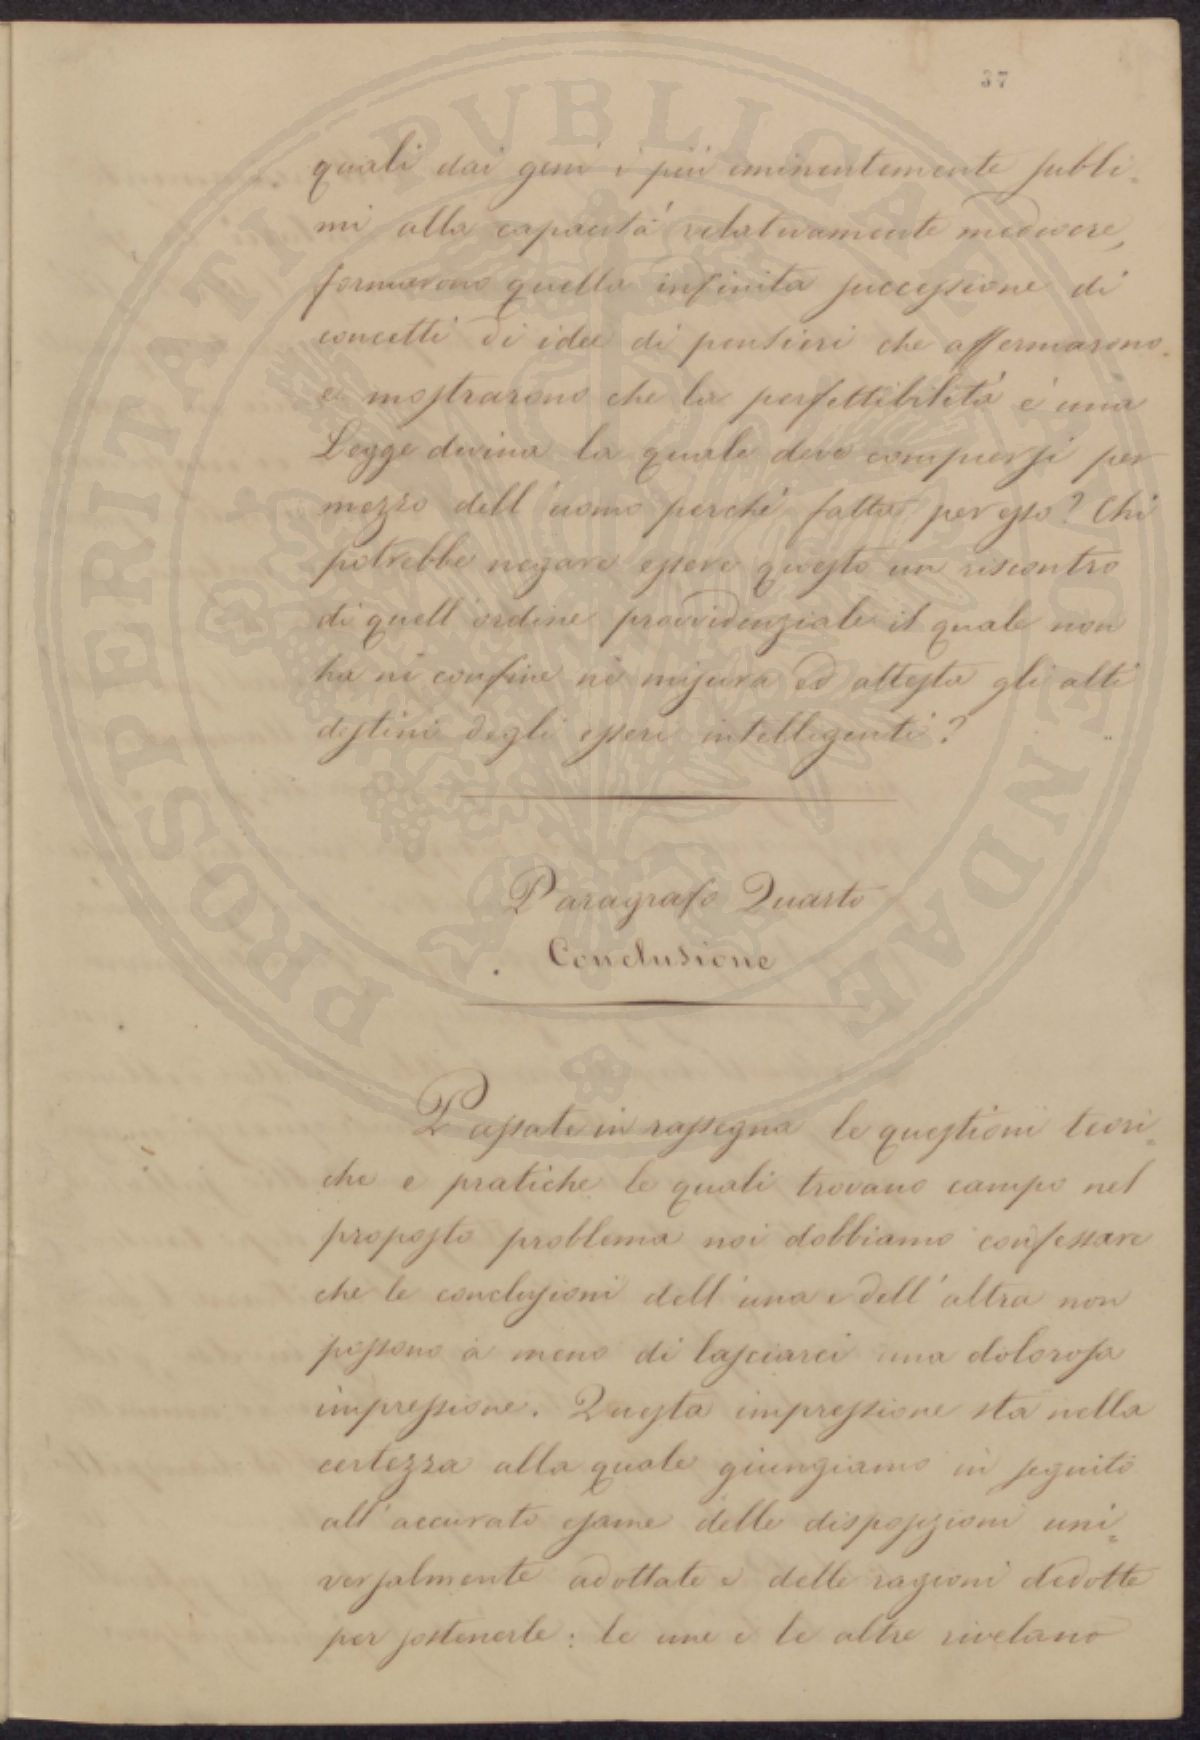 37
quali dai geni i più eminentemente subli=
mi alla capacità relativamente mediocre,
formarono quella infinita successione di
concetti di idee di pensieri che affermarono
e mostrarono che la perfettibilità è una
Legge divina la quale deve compiersi per
mezzo dell'uomo perchè fatta per esso? Chi
potrebbe negare essere questo un riscontro
di quell'ordine provvidenziale il quale non
ha nè confine nè misura ed attesta gli alti
destini degli esseri intelligenti?
Paragrafo Quarto
Conclusione
Passate in rassegna le questioni teori=
che e pratiche le quali trovano campo nel
proposto problema noi dobbiamo confessare
che le conclusioni dell'una e dell'altra non
possono a meno di lasciarci una dolorosa
impressione. Questa impressione sta nella
certezza alla quale giungiamo in seguito
all'accurato esame delle disposizioni uni=
versalmente adottate e delle ragioni dedotte
per sostenerle: le une e le altre rivelano
PROSPERITATI PVBLICAE AVGENDAE